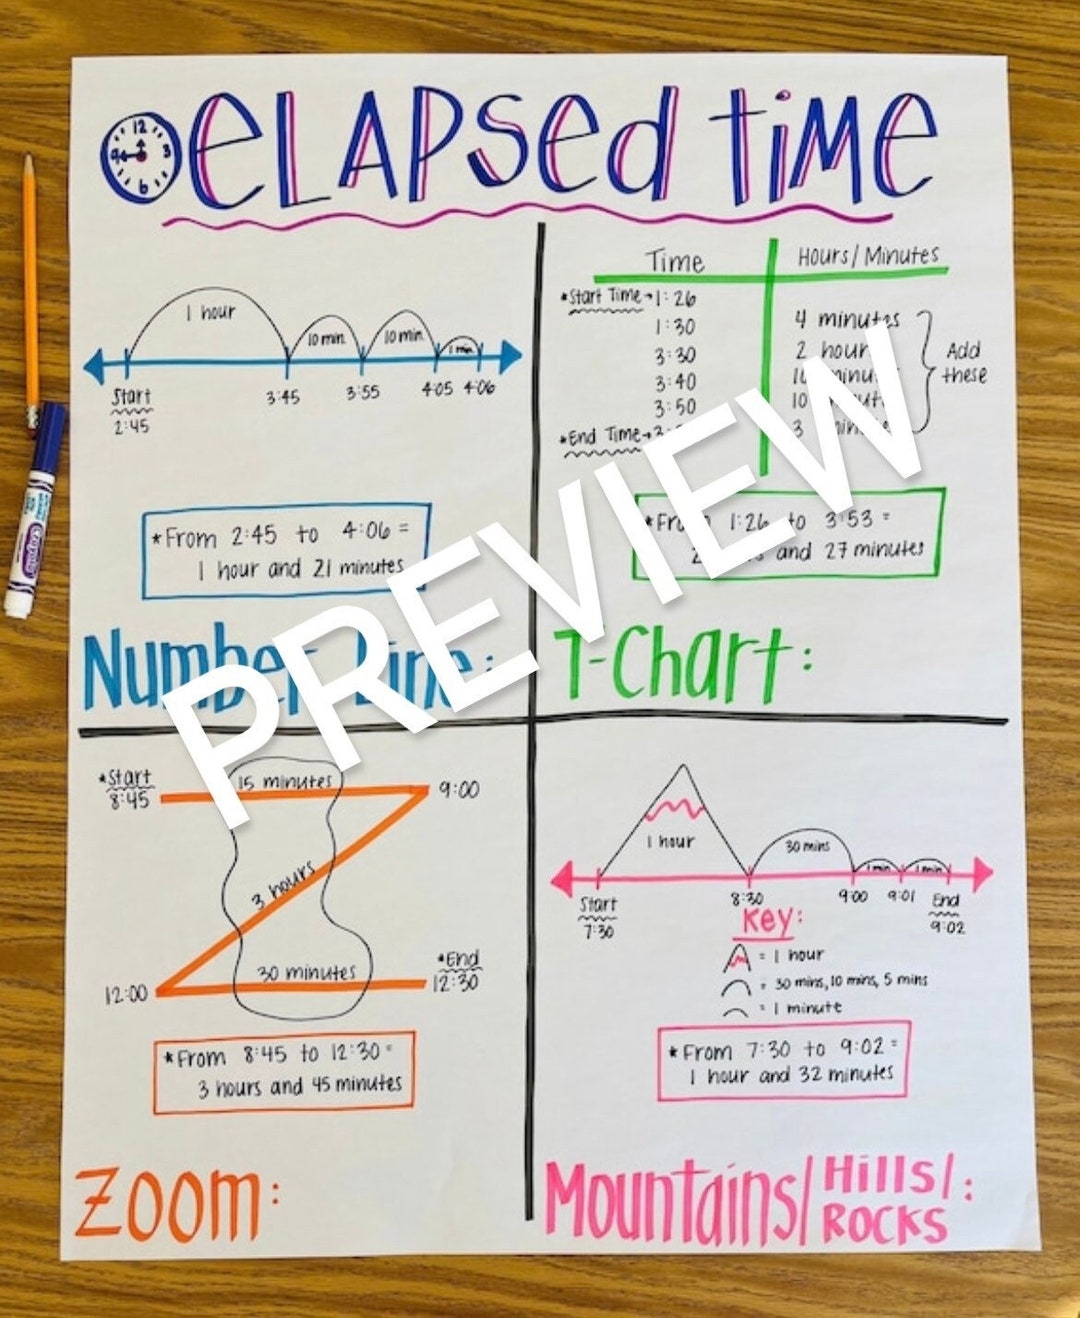 12
3
6
9
ELAPSED TIME
1 hour
10 min.
10 min.
1 min.
Start
2:45
3:45
3:55
4:05
4:06
*From 2:45 to 4:06 =
1 hour and 21 minutes
Number Line:
Time
Hours/Minutes
*Start Time→1:26
1:30
3:30
3:40
3:50
*End Time→3:
4 minutes
2 hour
10 minu
10
3
Add
these
*From 1:26 to 3:53 =
2 and 27 minutes
T-Chart:
PREVIEW
*Start
8:45
15 minutes
9:00
3 hours
12:00
30 minutes
*End
12:30
*From 8:45 to 12:30 =
3 hours and 45 minutes
Zoom:
1 hour
30 mins
1 min
1 min
Start
7:30
8:30
9:00
9:01
End
9:02
Key:
= 1 hour
= 30 mins, 10 mins, 5 mins
= 1 minute
*From 7:30 to 9:02 =
1 hour and 32 minutes
Mountains/Hills/:
Rocks
Crayola